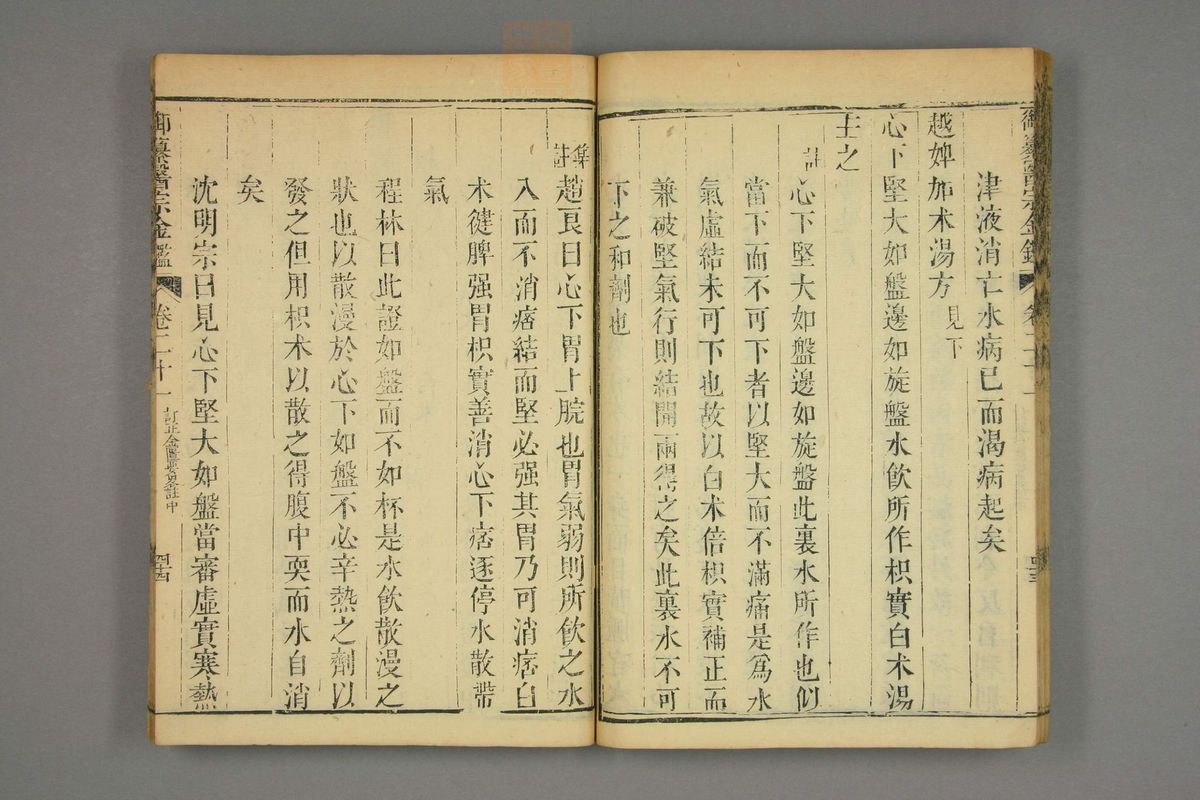 御纂醫宗金鑑
卷二十一
津液消亡水病已而渴病起矣
越婢加术湯方 見下
心下堅大如盤邊如旋盤水飲所作枳實白术湯
主之
註
心下堅大如盤邊如旋盤此裏水所作也似
當下而不可下者以堅大而不滿痛是為水
氣虛結未可下也故以白术倍枳實補正而
兼破堅氣行則結開兩得之矣此裏水不可
下之和劑也
集註 趙良曰心下胃上脘也胃氣弱則所飲之水
入而不消痞結而堅必强其胃乃可消痞白
术健脾强胃枳實善消心下痞逐停水散滯
氣
程林曰此證如盤而不如杯是水飲散漫之
狀也以散漫於心下如盤不必辛熱之劑以
發之但用枳术以散之得腹中耎而水自消
矣
沈明宗曰見心下堅大如盤當審虛實寒熱
御纂醫宗金鑑
卷二十一
訂正金匱要畧註中
四十四